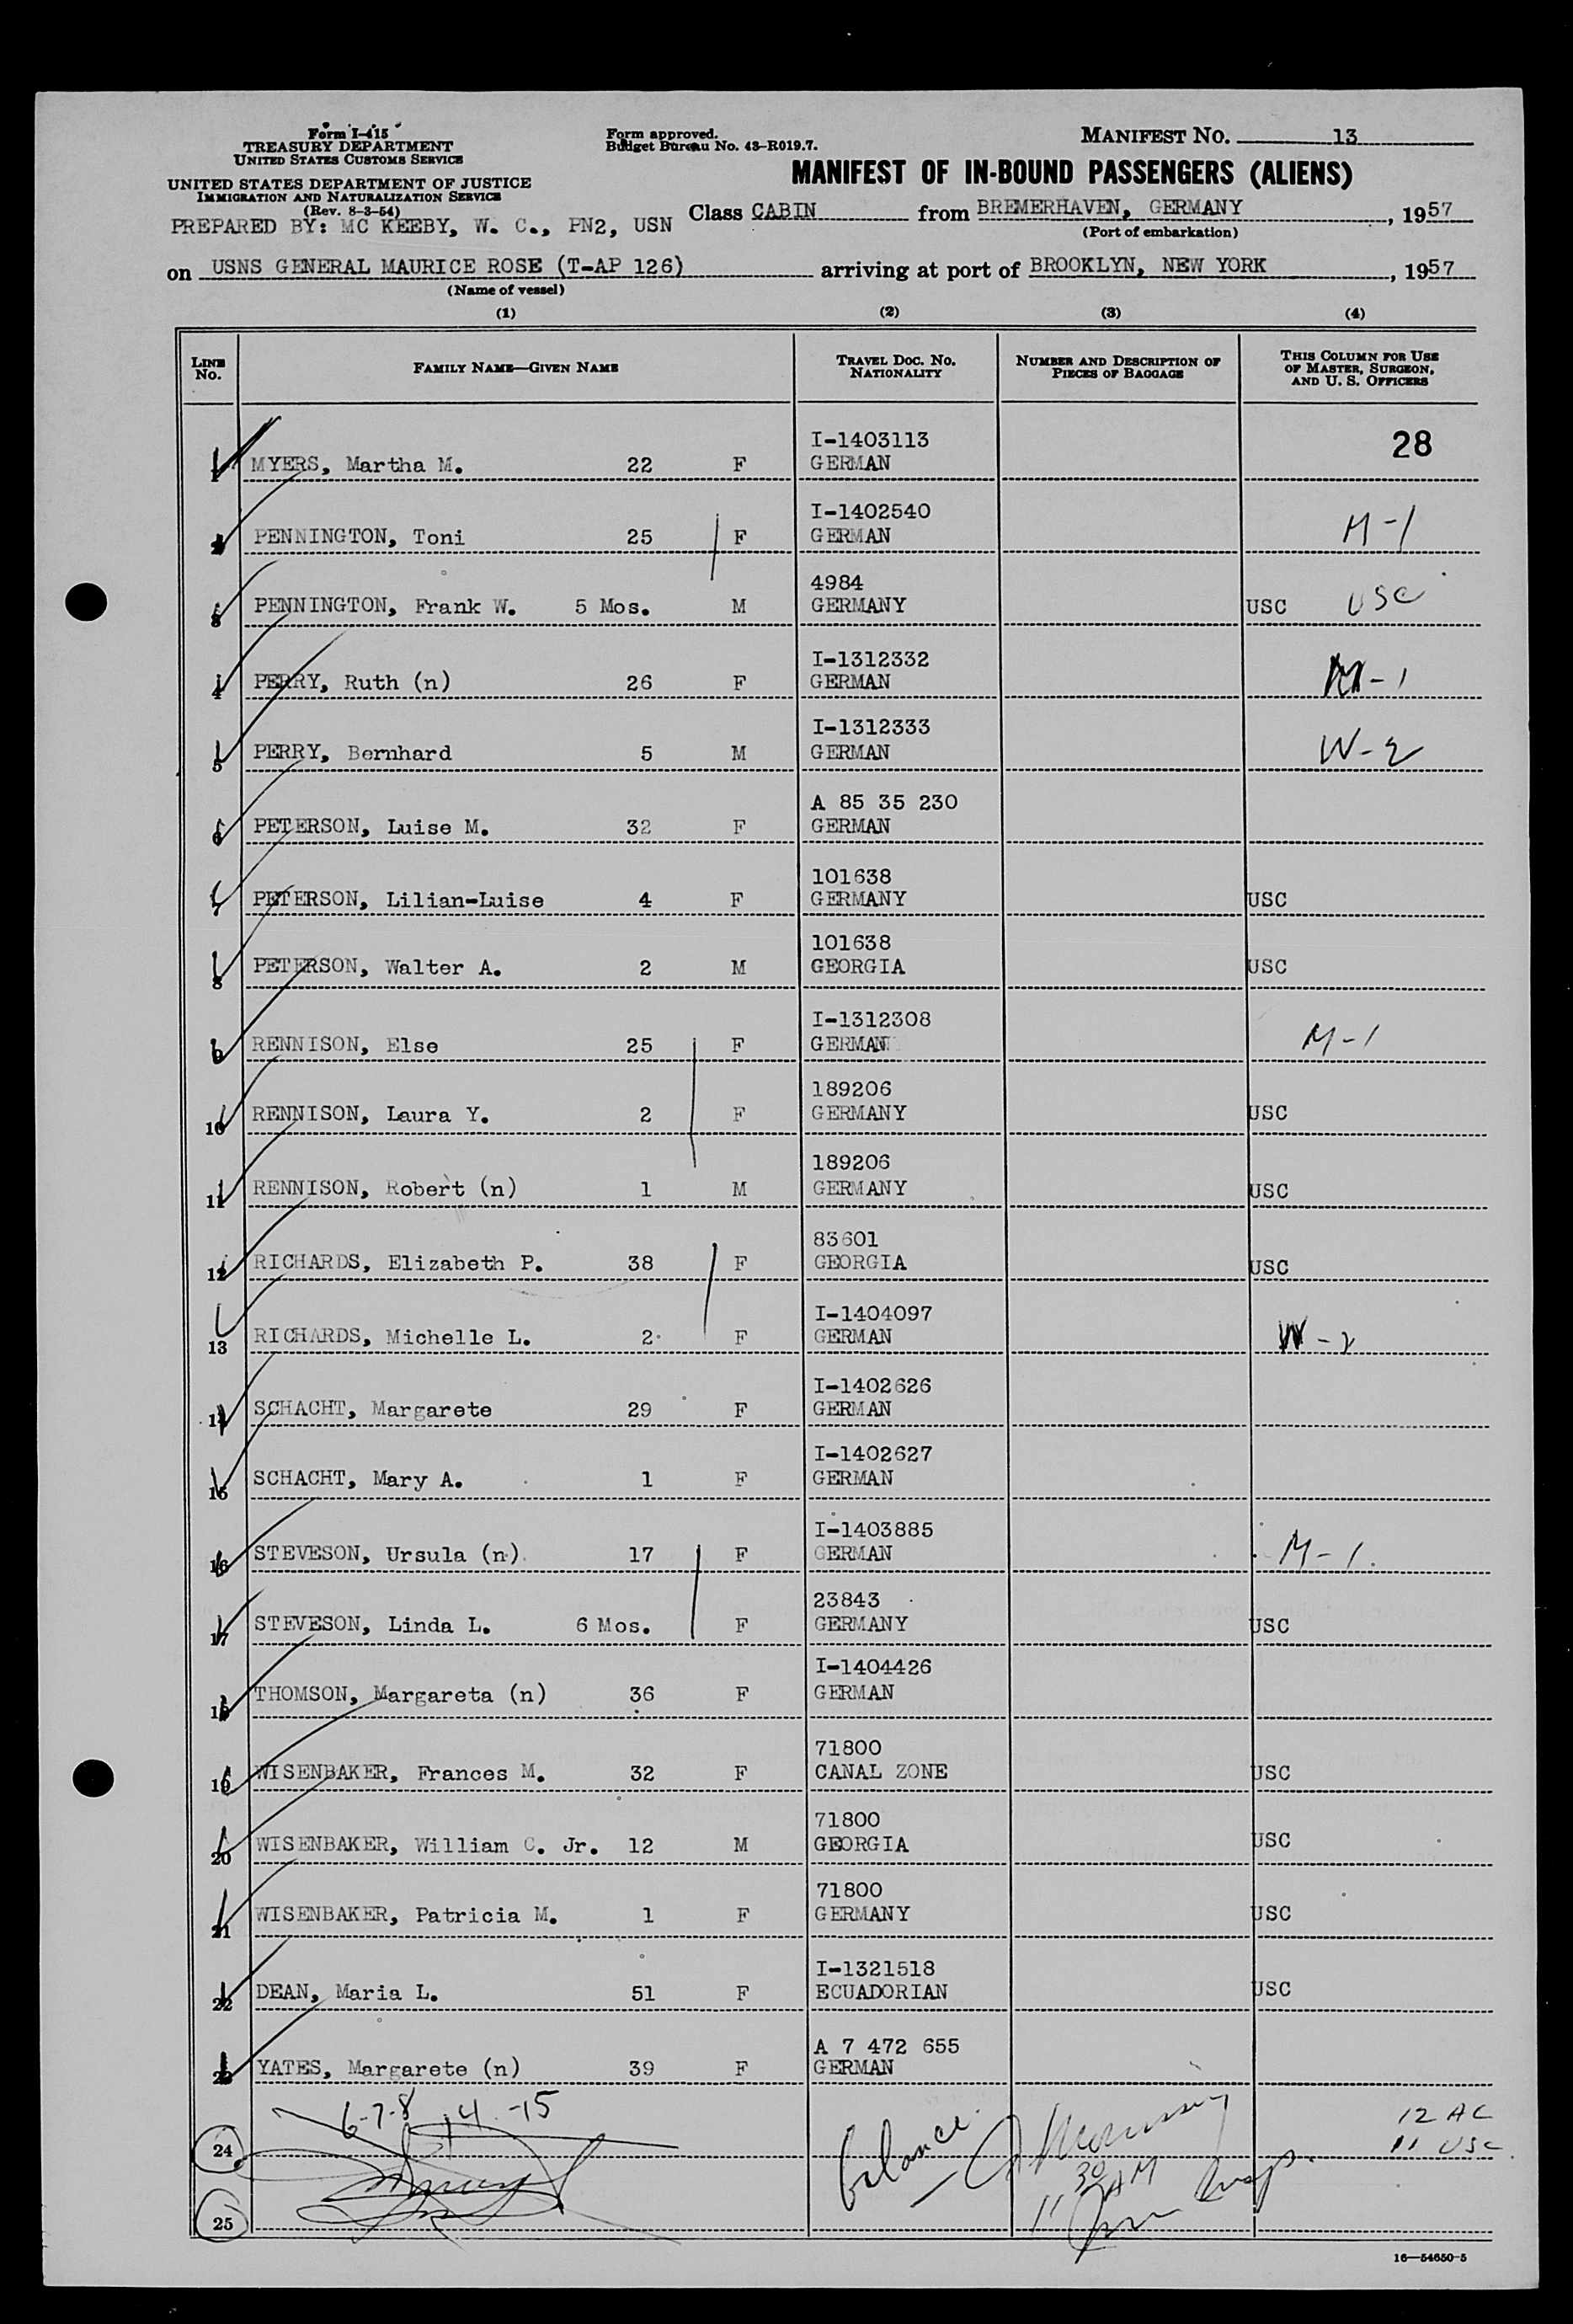 Form I-415
TREASURY DEPARTMENT
UNITED STATES CUSTOMS SERVICE
UNITED STATES DEPARTMENT OF JUSTICE
IMMIGRATION AND NATURALIZATION SERVICE
(Rev. 8-3-54)
PREPARED BY: MC KEEBY, W. C., PN2, USN
Form approved.
Budget Bureau No. 43-R019.7.
MANIFEST NO. 13
MANIFEST OF IN-BOUND PASSENGERS (ALIENS)
Class CABIN from BREMERHAVEN, GERMANY, 1957
(Port of embarkation)
on USNS GENERAL MAURICE ROSE (T-AP 126) arriving at port of BROOKLYN, NEW YORK, 1957
(Name of vessel)
(1) (2) (3) (4)
LINE NO. FAMILY NAME—GIVEN NAME TRAVEL DOC. NO. NATIONALITY NUMBER AND DESCRIPTION OF PIECES OF BAGGAGE THIS COLUMN FOR USE OF MASTER, SURGEON, AND U. S. OFFICERS
I-1403113 28
1 MYERS, Martha M. 22 F GERMAN
I-1402540
2 PENNINGTON, Toni 25 F GERMAN M-1
4984
3 PENNINGTON, Frank W. 5 Mos. M GERMANY USC USC
I-1312332
4 PERRY, Ruth (n) 26 F GERMAN M-1
I-1312333
5 PERRY, Bernhard 5 M GERMAN W-2
A 85 35 230
6 PETERSON, Luise M. 32 F GERMAN
101638
7 PETERSON, Lilian-Luise 4 F GERMANY USC
101638
8 PETERSON, Walter A. 2 M GEORGIA USC
I-1312308
9 RENNISON, Else 25 F GERMAN M-1
189206
10 RENNISON, Laura Y. 2 F GERMANY USC
189206
11 RENNISON, Robert (n) 1 M GERMANY USC
83601
12 RICHARDS, Elizabeth P. 38 F GEORGIA USC
I-1404097
13 RICHARDS, Michelle L. 2 F GERMAN W-2
I-1402626
14 SCHACHT, Margarete 29 F GERMAN
I-1402627
15 SCHACHT, Mary A. 1 F GERMAN
I-1403885
16 STEVESON, Ursula (n) 17 F GERMAN M-1.
23843
17 STEVESON, Linda L. 6 Mos. F GERMANY USC
I-1404426
18 THOMSON, Margareta (n) 36 F GERMAN
71800
19 WISENBAKER, Frances M. 32 F CANAL ZONE USC
71800
20 WISENBAKER, William C. Jr. 12 M GEORGIA USC
71800
21 WISENBAKER, Patricia M. 1 F GERMANY USC
I-1321518
22 DEAN, Maria L. 51 F ECUADORIAN USC
A 7 472 655
23 YATES, Margarete (n) 39 F GERMAN
6-7-8 14-15
12 AC
24 balance 11 USC
11 30 AM
25
16—54650-5